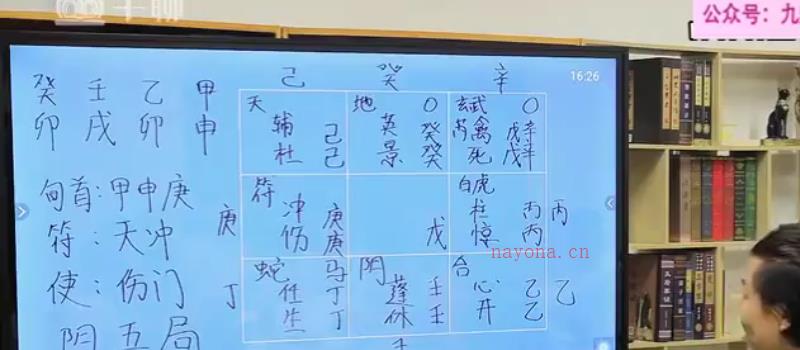 千聊
公众号：九
16:26
癸 壬 乙 甲
卯 戌 卯 申
旬首：甲申庚
符：天冲
使：伤门
阴五局
己 癸 辛
天 地 〇 玄武 〇
辅 己 英 癸 芮禽 戊辛
杜 己 景 癸 死 戊辛
符 白虎
庚 冲 庚 柱 丙 丙
伤 庚 戊 惊 丙
蛇 马 阴 合
丁 任 丁 蓬 壬 心 乙 乙
生 丁 休 壬 开 乙
壬
nayona.cn